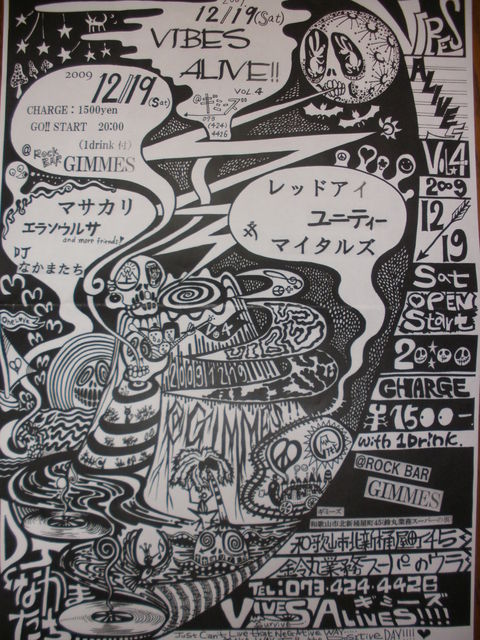 12/19(Sat)
VIBES
ALIVE!!
VOL.4
@ギミーズ
073
(424)
4426
2009 12/19(Sat)
CHARGE: 1500yen
GO!! START 20:00
(1drink 付)
@ROCK BAR GIMMES
マサカリ
エラソウルサ
and more friends!
DJ
なかまたち
レッドアイ
ユニティー
マイタルズ
VIBES
ALIVE
Vol.4
2009
12/19
Sat
OPEN
Start
20:00
CHARGE
¥1500-
with 1Drink.
@ROCK BAR
GIMMES
ONE LOVE
2009 12/19
@GIMMES!!
ギミーズ
和歌山市北新桶屋町45(鈴丸業務スーパーの裏
和歌山市北新桶屋町45
鈴丸業務スーパーのウラ
TEL:073-424-4426
ギミーズ
VIVES ALIVES!!!!
DJなかまたち
Just Can't Live that Negative Way
Positive DAY!!!!